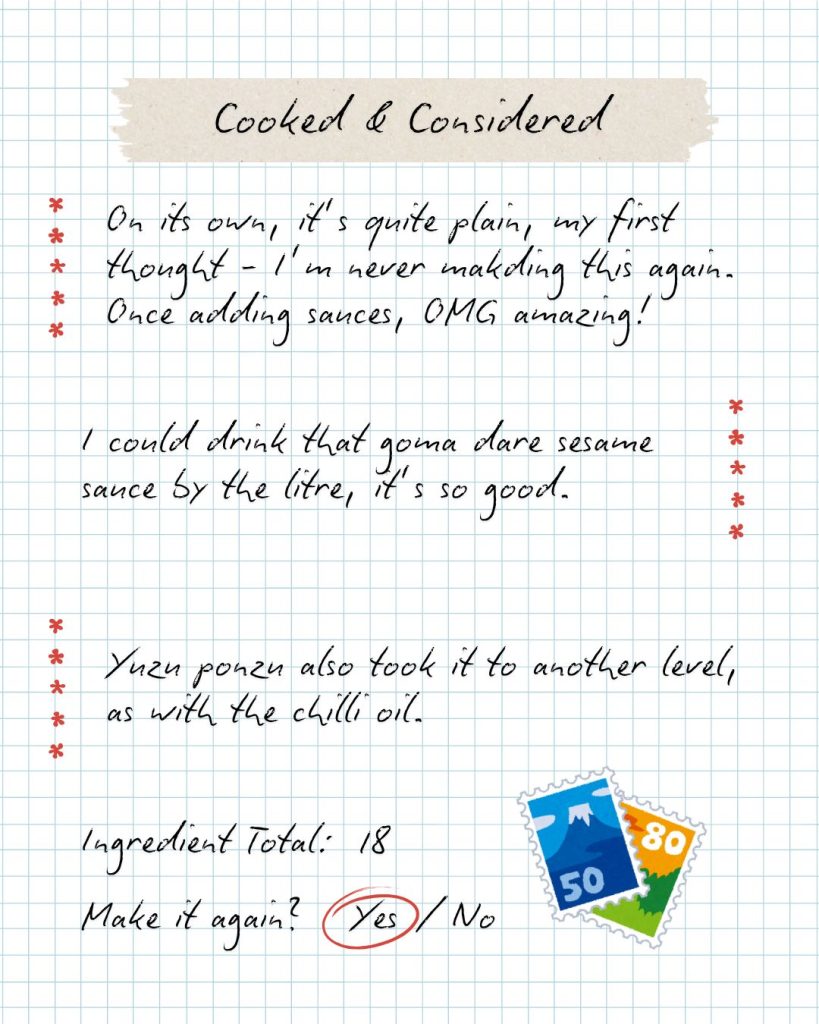 Cooked & Considered
On its own, it's quite plain, my first
thought - I'm never makding this again.
Once adding sauces, OMG amazing!
I could drink that goma dare sesame
sauce by the litre, it's so good.
Yuzu ponzu also took it to another level,
as with the chilli oil.
Ingredient Total: 18
Make it again? Yes / No
50
80